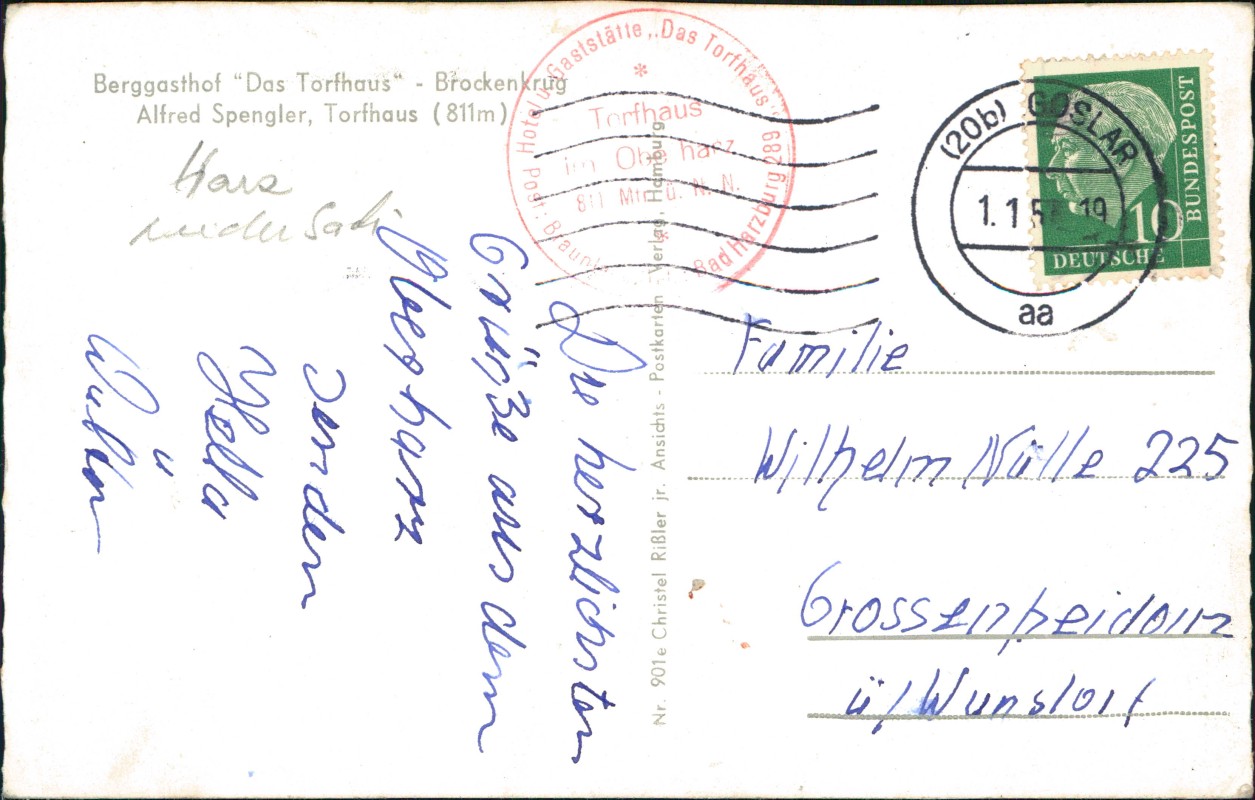 Berggasthof "Das Torfhaus" - Brockenkrug
Alfred Spengler, Torfhaus (811m)
Harz
niedersach
Hotel u. Gaststätte „Das Torfhaus“
Post: Braunl
Bad Harzburg 289
Torfhaus
im Obe harz
811 Mtr. ü. N. N.
(20b) GOSLAR
1. 1 5 19
aa
BUNDESPOST
10
DEUTSCHE
Die herzlichsten
Grüße aus dem
Oberharz
senden
Hella
ü
Nr. 901e Christel Rißler jr. Ansichts - Postkarten - Verlag, Hamburg
Familie
Wilhelm Nülle 225
Grossenheidorn
ü/Wunstorf